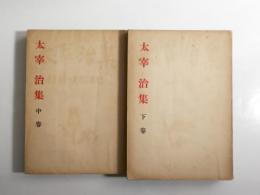 太宰治集
中巻
太宰治集
下巻